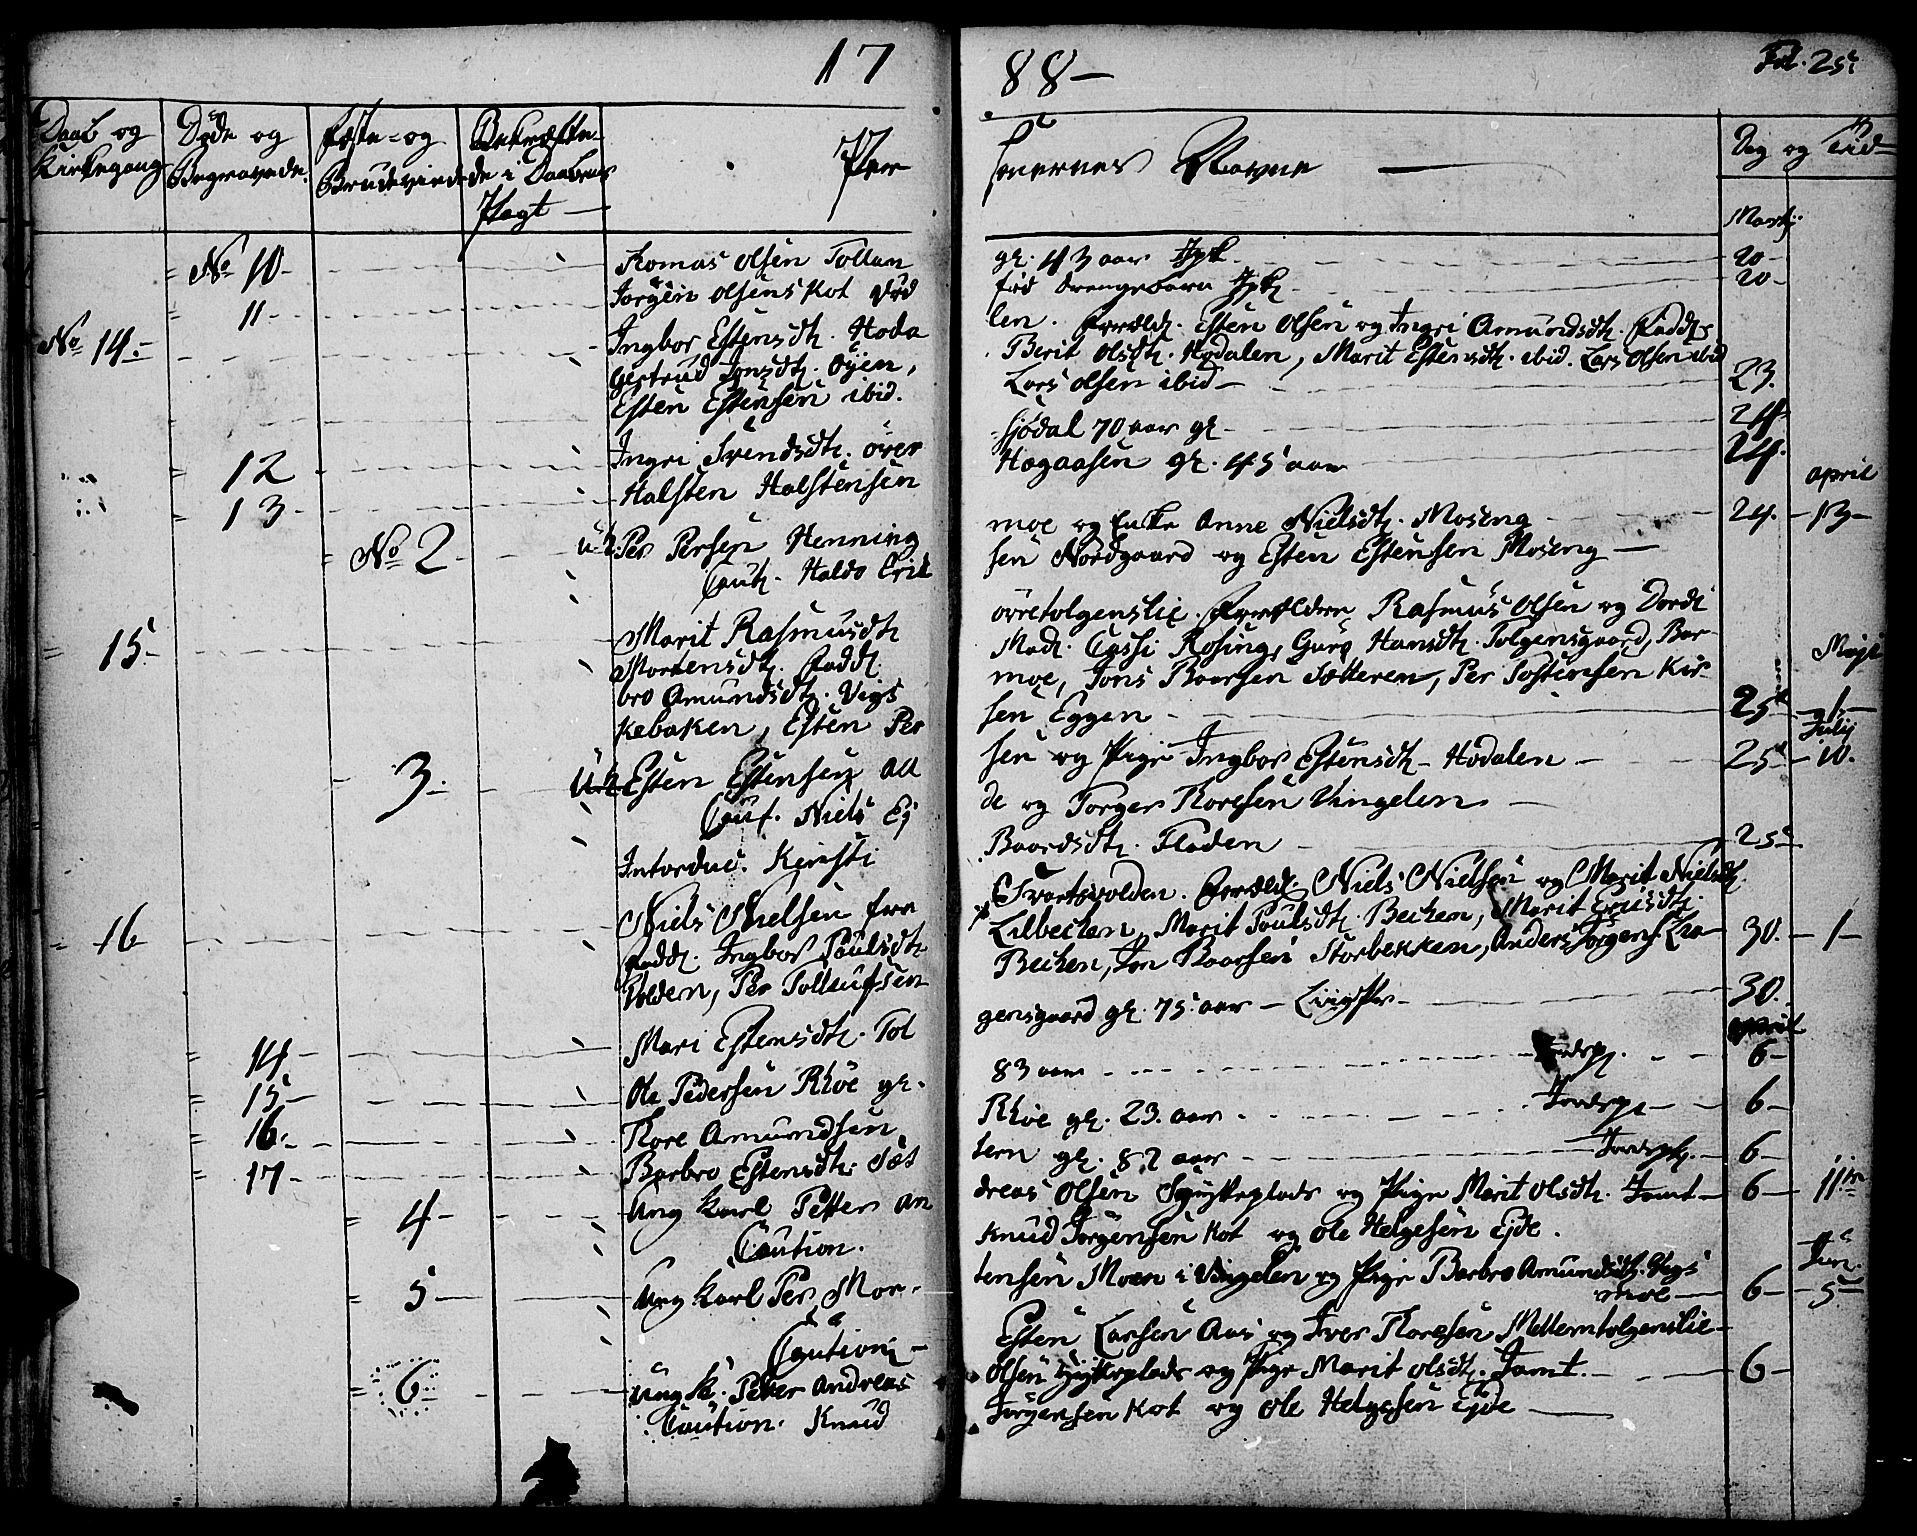 17 88-
Fol. 25:
Daab og Kirkegang
Døde og Begravede
Fæste- og Brudeviede
Bekræfte de i Daabens Pagt
Per sonernes Navne
Dag og Tid
Martj
No 10 - Tomas Olsen Tollan gl. 43 aar Jpk. 20-
11 - Jørgen Olsens Kot død fød drengebarn Jpk 20-
No 14. Ingbor Estensdt. Hoda len. Foræld. Esten Olsen og Ingri Amundsdt. Fadd.
Gertrud Jonsdt. Øyen, Berit Olsdt. Hodalen, Marit Estensdt. ibid. Lars Olsen ibid
Esten Estensen ibid. Lars Olsen ibid - 23.
12 Ingri Svendsdt. över sjødal 70 aar gl - 24-
13 - Halsten Halstensen Hogaasen gl. 45 aar 24.
april
No 2 - Per Persen Henning moe og Enke Anne Nielsdt. Moseng 24. - 13 -
Caut. Haldo Erik sen Nordgaard og Esten Estensen Moseng -
15 - Marit Rasmusdt øvretolgenslie. Forældre Rasmus Olsen og Dordi
Mortensdt. Fadd. Mad. Cassi Rosing, Guro Hansdt. Tolgensgaard, Bar-
bro Amundsdt. Vigs moe, Jons Baarsen Sætteren, Per Jostensen Kir-
Maji
kebaken, Esten Per sen Eggen - 25 - 1 -
July
3. Esten Estensen Aa sen og Pige Ingbor Estensdt - Hodalen 25 - 10.
Caut. Niels Ej de og Torger Toresen Vingelen -
Introduc. Kirsti Baardsdt. Floden 25
16 Niels Nielsen fra Svartevolden. Foræld. Niels Nielsen og Marit Nielsdt
Fadd. Ingbor Poulsdt Lilbecken, Marit Poulsdt. Becken, Marit Ericsdt.
Volden, Per Tollufsen Becken, Jon Baarsen Storbekken, Anders Jorgens. 30. - 1 -
14 - Mari Estensdt. Tol gensgaard gl. 75 aar - 30.
april
15 - Ole Pedersen Rhöe gl. 83 aar 6 -
16. - Tore Amundsen Rhöe gl. 23. aar Jordsp. 6 -
17 - Barbro Estensdt. Sæt tern gl. 82 aar Jordspk. 6 -
4 - Ung Karl Petter An dreas Olsen Hyttepladsen og Pige Marit Olsdt. Tamt - 6 - 11te
Caution. Knud Jørgensen Kot og Ole Helgesen Ejde.
Jun.
5 - Ung Karl Per Mor- tensen Moen i Vingelen og Pige Barbro Amundsdt. Vigs
moe - 6 - 5
Caution - Esten Larsen Aas og Iver Toresen Mellemtolgenslie -
6 - Ung K. Petter Andreas Olsen Hyttepladsen og Pige Marit Olsdt. Tamt. 6 -
Caution. Knud Jørgensen Kot og Ole Helgesen Ejde -